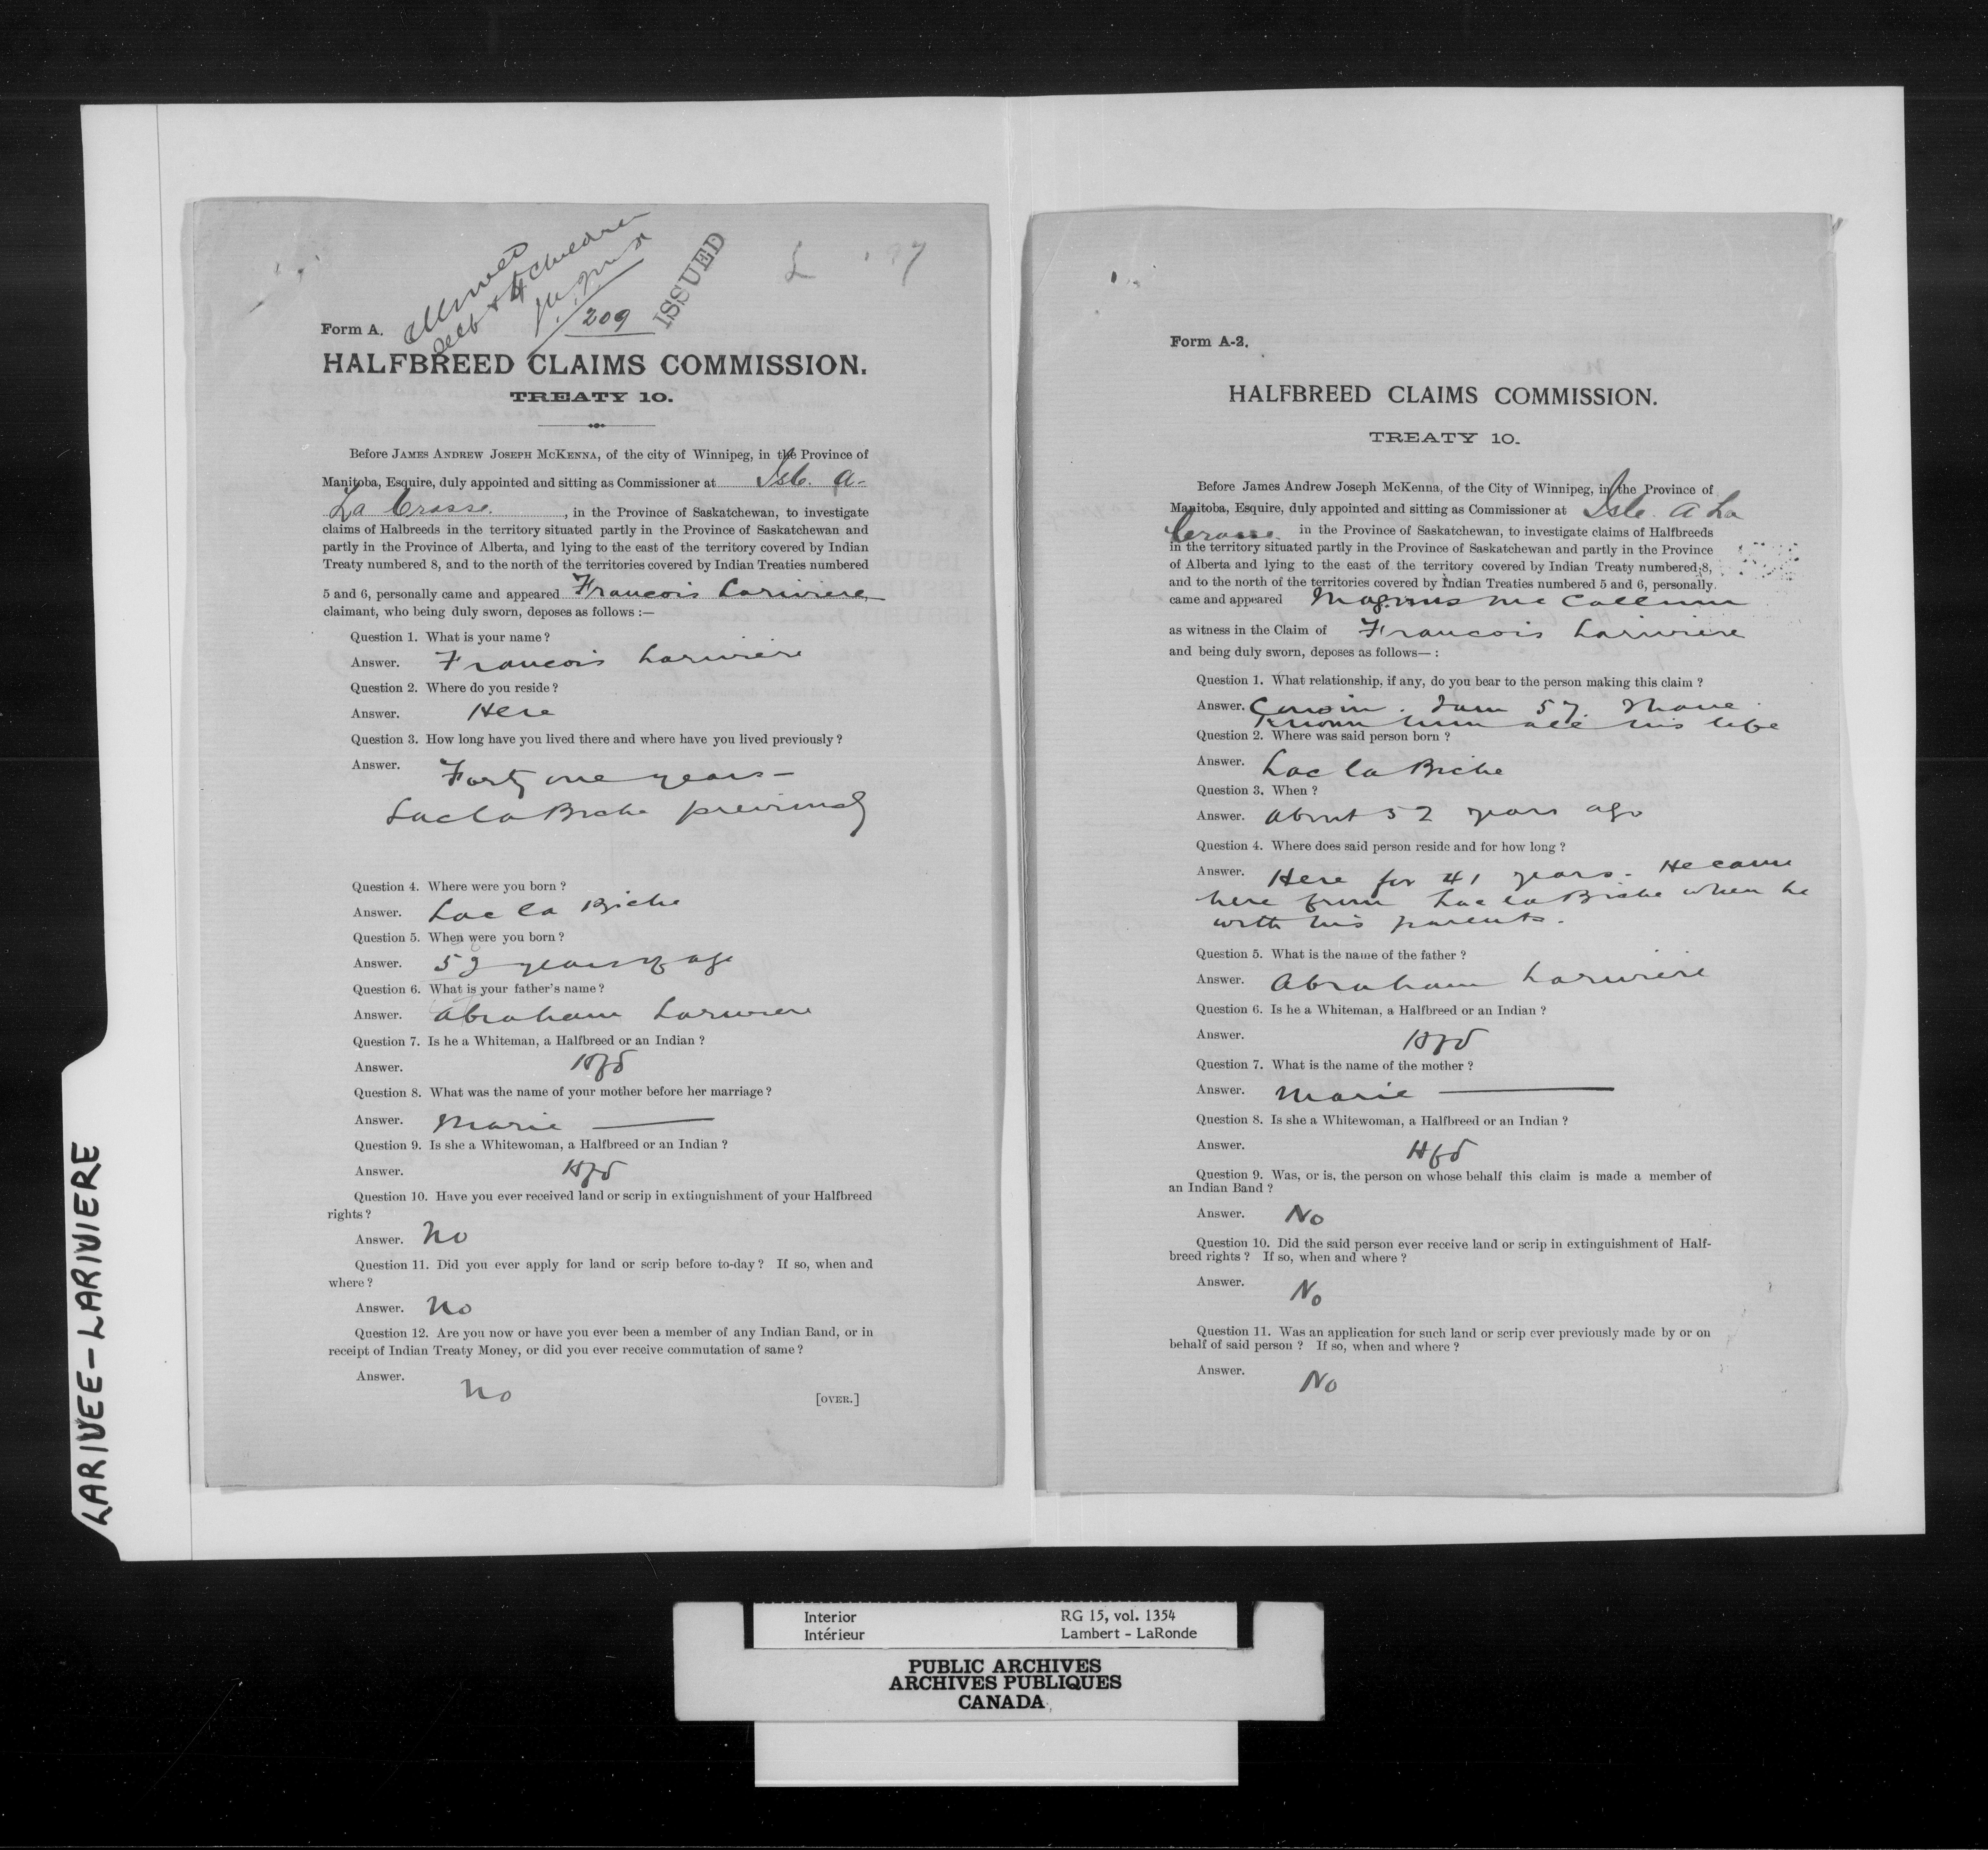 LARIVEE-LARIVIERE
Allowed
self & 4 children
J.A.J.McK
209
ISSUED
L
Form A.
HALFBREED CLAIMS COMMISSION.
TREATY 10.
Before JAMES ANDREW JOSEPH MCKENNA, of the city of Winnipeg, in the Province of
Manitoba, Esquire, duly appointed and sitting as Commissioner at Isle. a-
La Crosse. , in the Province of Saskatchewan, to investigate
claims of Halbreeds in the territory situated partly in the Province of Saskatchewan and
partly in the Province of Alberta, and lying to the east of the territory covered by Indian
Treaty numbered 8, and to the north of the territories covered by Indian Treaties numbered
5 and 6, personally came and appeared Francois Lariviere
claimant, who being duly sworn, deposes as follows :—
Question 1. What is your name?
Answer. Francois Lariviere
Question 2. Where do you reside?
Answer. Here
Question 3. How long have you lived there and where have you lived previously?
Answer. Forty one years —
Lac la Biche previously
Question 4. Where were you born?
Answer. Lac la Biche
Question 5. When were you born?
Answer. 52 years of age
Question 6. What is your father's name?
Answer. Abraham Lariviere
Question 7. Is he a Whiteman, a Halfbreed or an Indian?
Answer. Hfd
Question 8. What was the name of your mother before her marriage?
Answer. Marie —
Question 9. Is she a Whitewoman, a Halfbreed or an Indian?
Answer. Hfd
Question 10. Have you ever received land or scrip in extinguishment of your Halfbreed
rights?
Answer. No
Question 11. Did you ever apply for land or scrip before to-day? If so, when and
where?
Answer. No
Question 12. Are you now or have you ever been a member of any Indian Band, or in
receipt of Indian Treaty Money, or did you ever receive commutation of same?
Answer. No
[OVER.]
Form A-2.
HALFBREED CLAIMS COMMISSION.
TREATY 10.
Before James Andrew Joseph McKenna, of the City of Winnipeg, in the Province of
Manitoba, Esquire, duly appointed and sitting as Commissioner at Isle. A La
Crosse. in the Province of Saskatchewan, to investigate claims of Halfbreeds
in the territory situated partly in the Province of Saskatchewan and partly in the Province
of Alberta and lying to the east of the territory covered by Indian Treaty numbered 8,
and to the north of the territories covered by Indian Treaties numbered 5 and 6, personally
came and appeared Magnus McCallum
as witness in the Claim of Francois Lariviere
and being duly sworn, deposes as follows— :
Question 1. What relationship, if any, do you bear to the person making this claim?
Answer. Cousin. I am 57. I have
known him all his life
Question 2. Where was said person born?
Answer. Lac la Biche
Question 3. When?
Answer. About 52 years ago
Question 4. Where does said person reside and for how long?
Answer. Here for 41 years. He came
here from Lac la Biche when he
with his parents.
Question 5. What is the name of the father?
Answer. Abraham Lariviere
Question 6. Is he a Whiteman, a Halfbreed or an Indian?
Answer. Hfd
Question 7. What is the name of the mother?
Answer. Marie —
Question 8. Is she a Whitewoman, a Halfbreed or an Indian?
Answer. Hfd
Question 9. Was, or is, the person on whose behalf this claim is made a member of
an Indian Band?
Answer. No
Question 10. Did the said person ever receive land or scrip in extinguishment of Half-
breed rights? If so, when and where?
Answer. No
Question 11. Was an application for such land or scrip ever previously made by or on
behalf of said person? If so, when and where?
Answer. No
Interior RG 15, vol. 1354
Intérieur Lambert - LaRonde
PUBLIC ARCHIVES
ARCHIVES PUBLIQUES
CANADA